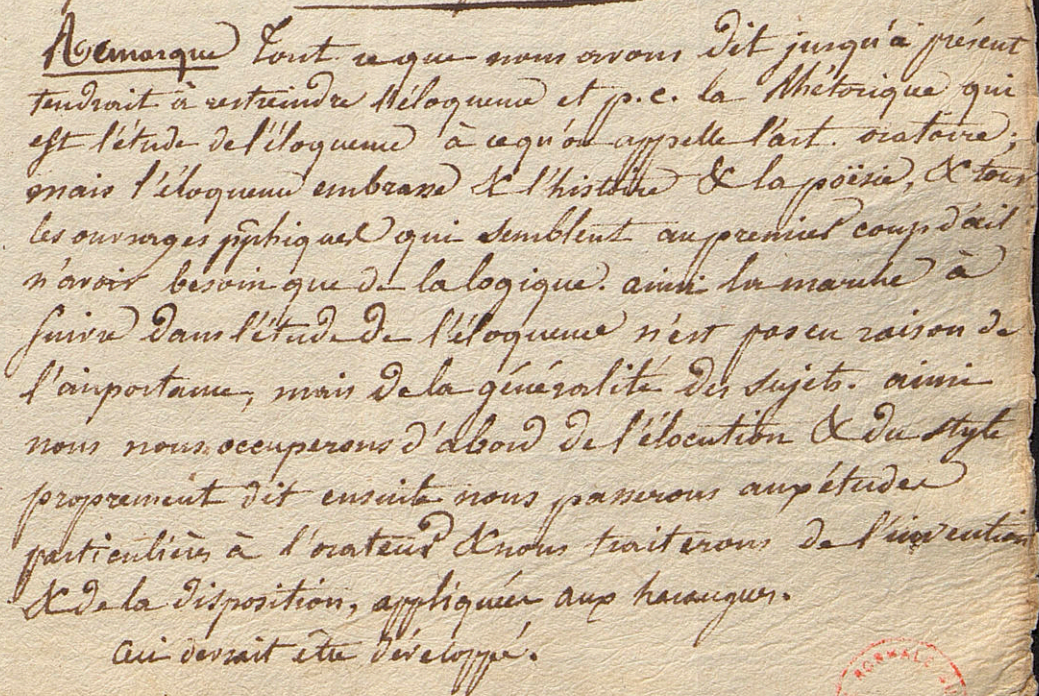 Remarque Tout ce que nous avons dit jusqu'à présent
tendrait à restreindre l'éloquence et p.c. la Rhétorique qui
est l'étude de l'éloquence à ce qu'on appelle l'art oratoire ;
mais l'éloquence embrasse & l'histoire & la poësie, & tous
les ouvrages pphiques qui semblent au premier coup d'œil
n'avoir besoin que de la logique. ainsi la marche à
suivre dans l'étude de l'éloquence n'est pas en raison de
l'importance, mais de la généralité des sujets. ainsi
nous nous occuperons d'abord de l'élocution & du style
proprement dit ensuite nous passerons aux études
particulières à l'orateur & nous traiterons de l'invention
& de la disposition, appliquées aux harangues.
Ceci devrait être développé.
NORMALE